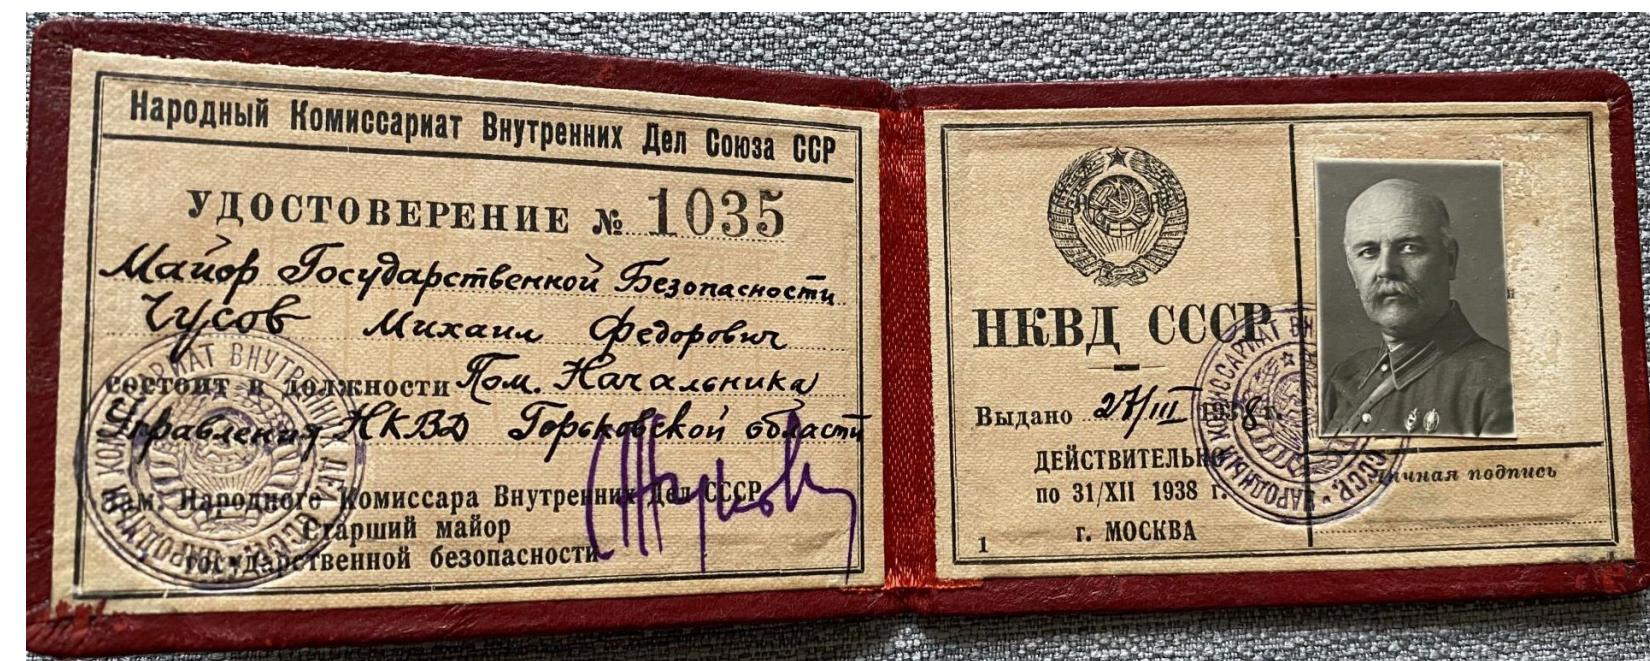 Народный Комиссариат Внутренних Дел Союза ССР
УДОСТОВЕРЕНИЕ № 1035
Майор Государственной Безопасности
Чусов Михаил Федорович
состоит в должности Пом. Начальника
Управления НКВД Горьковской области
Зам. Народного Комиссара Внутренних Дел СССР
Старший майор
государственной безопасности
НКВД СССР
Выдано 27/III 1938 г.
ДЕЙСТВИТЕЛЬНО
по 31/XII 1938 г.
г. МОСКВА
1
Личная подпись
НАРОДНЫЙ КОМИССАРИАТ ВНУТРЕННИХ ДЕЛ СССР
НАРОДНЫЙ КОМИССАРИАТ ВН
СССР